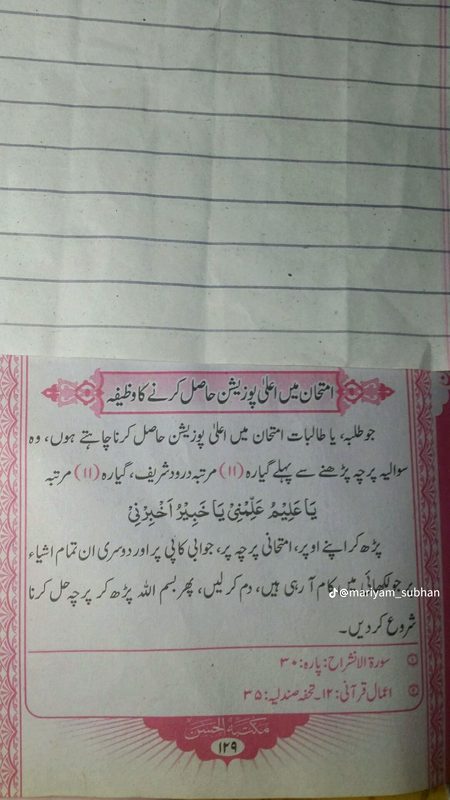 امتحان میں اعلیٰ پوزیشن حاصل کرنے کا وظیفہ
جو طلبہ، یا طالبات امتحان میں اعلیٰ پوزیشن حاصل کرنا چاہتے ہوں، وہ
سوالیہ پرچہ پڑھنے سے پہلے گیارہ (۱۱) مرتبہ درود شریف، گیارہ (۱۱) مرتبہ
یَا عَلِیْمُ عَلِّمْنِیْ یَا خَبِیْرُ اَخْبِرْنِیْ
پڑھ کر اپنے اوپر، امتحانی پرچہ پر، جوابی کاپی پر اور دوسری ان تمام اشیاء
پر جو لکھائی میں کام آ رہی ہیں، دم کر لیں، پھر بسم اللہ پڑھ کر پرچہ حل کرنا
@mariyam_subhan
شروع کر دیں۔
سورۃ الانشراح: پارہ: ۳۰
اعمال قرآنی: ۱۲۔ تحفہ صندلیہ: ۳۵
مکتبۃ الحسن
۱۲۹